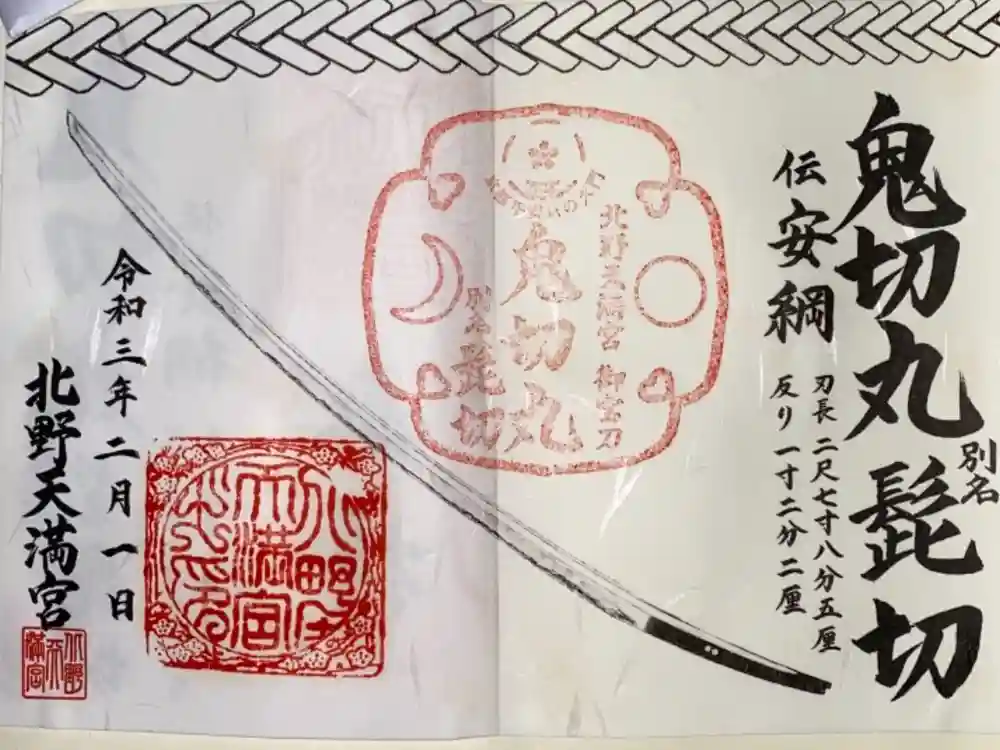 鬼切丸 別名 髭切
伝安綱
刃長 二尺七寸八分五厘
反り 一寸二分二厘
北野天満宮 御宝刀
鬼切丸
別名 髭切
令和三年二月一日
北野天満宮
北野天満宮